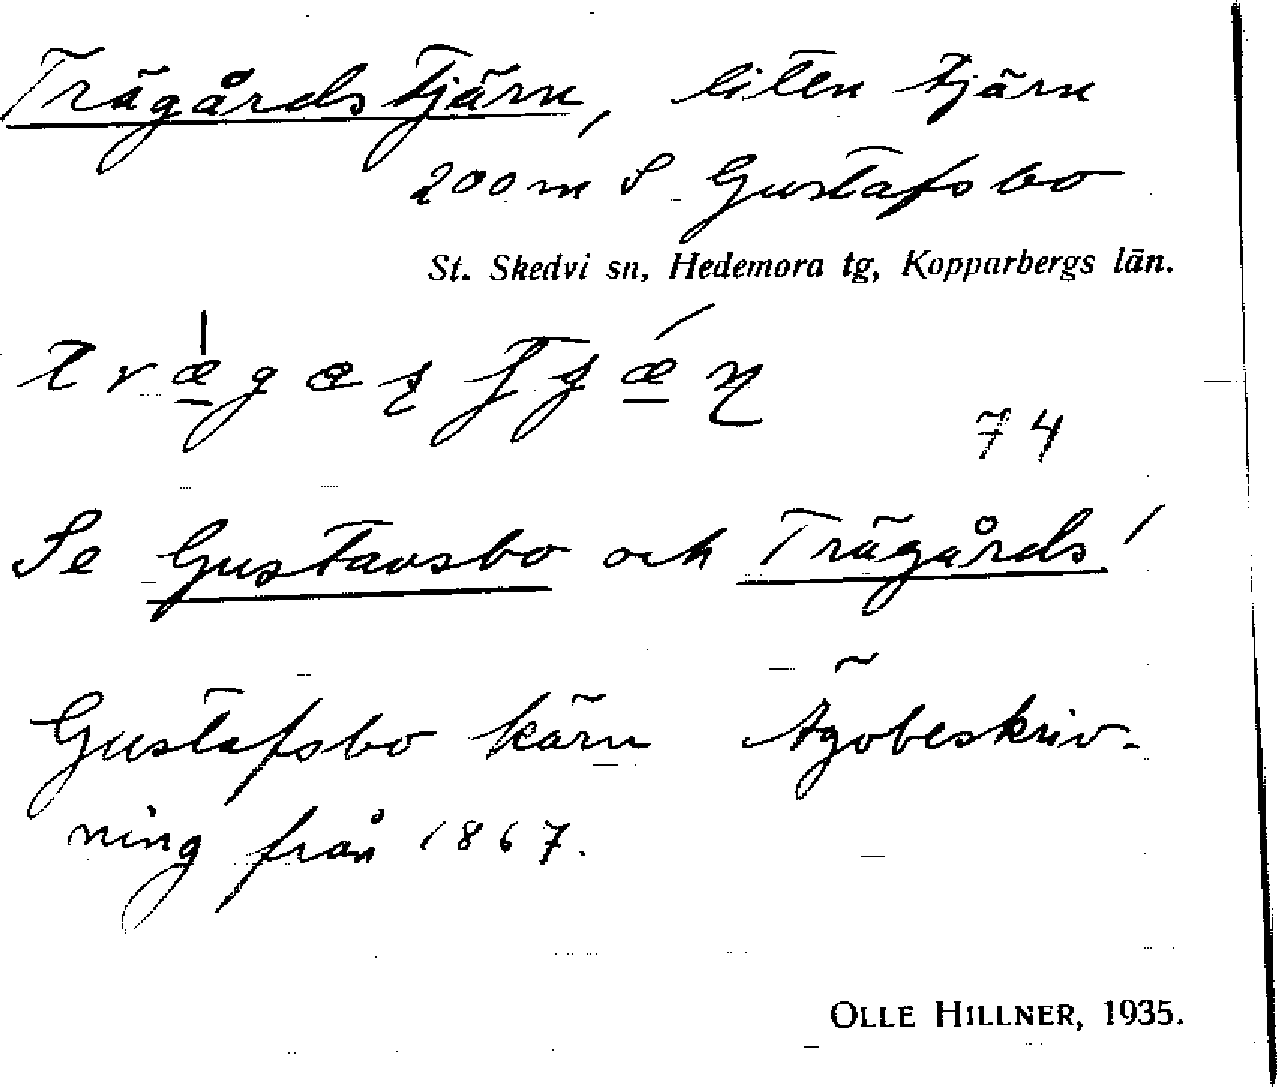 Trägårdstjärn, liten tjärn
200 m S Gustafsbo
St. Skedvi sn, Hedemora tg, Kopparbergs län.
74
Se Gustavsbo och Trägårds!
Gustafsbo kärn Ägobeskriv-
ning från 1867.
OLLE HILLNER, 1935.